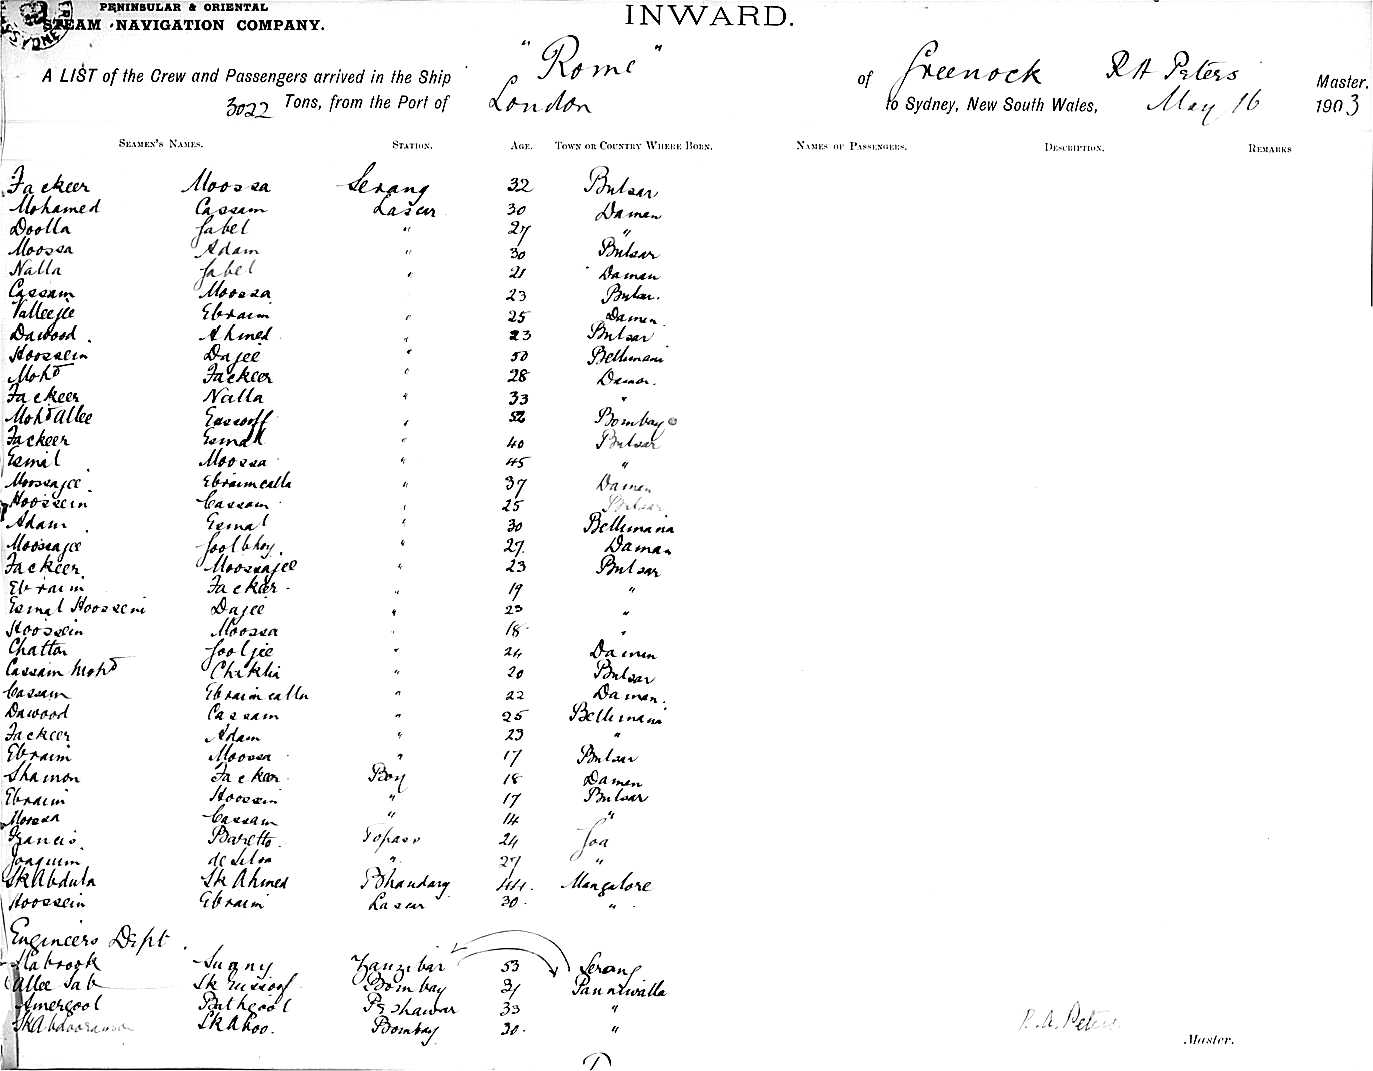 PENINSULAR & ORIENTAL
STEAM NAVIGATION COMPANY.
INWARD.
A LIST of the Crew and Passengers arrived in the Ship "Rome" of Greenock R A Peters Master.
3022 Tons, from the Port of London to Sydney, New South Wales, May 16 1903
SEAMEN'S NAMES. STATION. AGE. TOWN OR COUNTRY WHERE BORN. NAMES OF PASSENGERS. DESCRIPTION. REMARKS
Fackeer Moossa Serang 32 Bulsar
Mohamed Cassam Lascar 30 Daman
Doolla Jabel " 27 "
Moossa Adam " 30 Bulsar
Nalla Jabel " 21 Daman
Cassam Moossa 23 Bulsar.
Valleejee Ebraim " 25 Daman
Dawood Ahmed " 23 Bulsar
Hoossein Dajee " 50 Bellimani
Mohd Fackeer " 28 Daman.
Fackeer Nalla " 33 "
Mohd Allee Eussoff " 52 Bombay
Fackeer Esmal " 40 Bulsar
Esmal Moossa " 45 "
Moossajee Ebraimcalla " 37 Daman
Hoossein Cassam " 25 Bulsar
Adam Esmal " 30 Bellimania
Moosajee Goolbhoy " 27 Daman
Fackeer Moossajee " 23 Bulsar
Ebraim Fackeer " 19 "
Esmal Hoossein Dajee " 23 "
Hoossein Moossa " 18 "
Chattan Gooljee " 24 Daman
Cassam Mohd Chiklia " 20 Bulsar
Cassam Ebraimcalla " 22 Daman.
Dawood Cassam " 25 Bellimani
Fackeer Adam " 23 "
Ebraim Moossa " 17 Bulsar
Shamon Fackeer Boy 18 Daman
Ebraim Hoossein " 17 Bulsar
Moossa Cassam " 14 "
Francis Baretto Topass 24 Goa
Joaquim de Silva " 27 "
Sk Abdula Sk Ahmed Bhandary 44. Mangalore
Hoossein Ebraim Lascar 30 "
Engineers Dept.
Mabrook Zanzibar 53 Serang
Allee Sab Sk Eussoof Bombay Panniwalla
Amergool Peshawar 33 "
Bombay 30 "
R. A. Peters
Master.